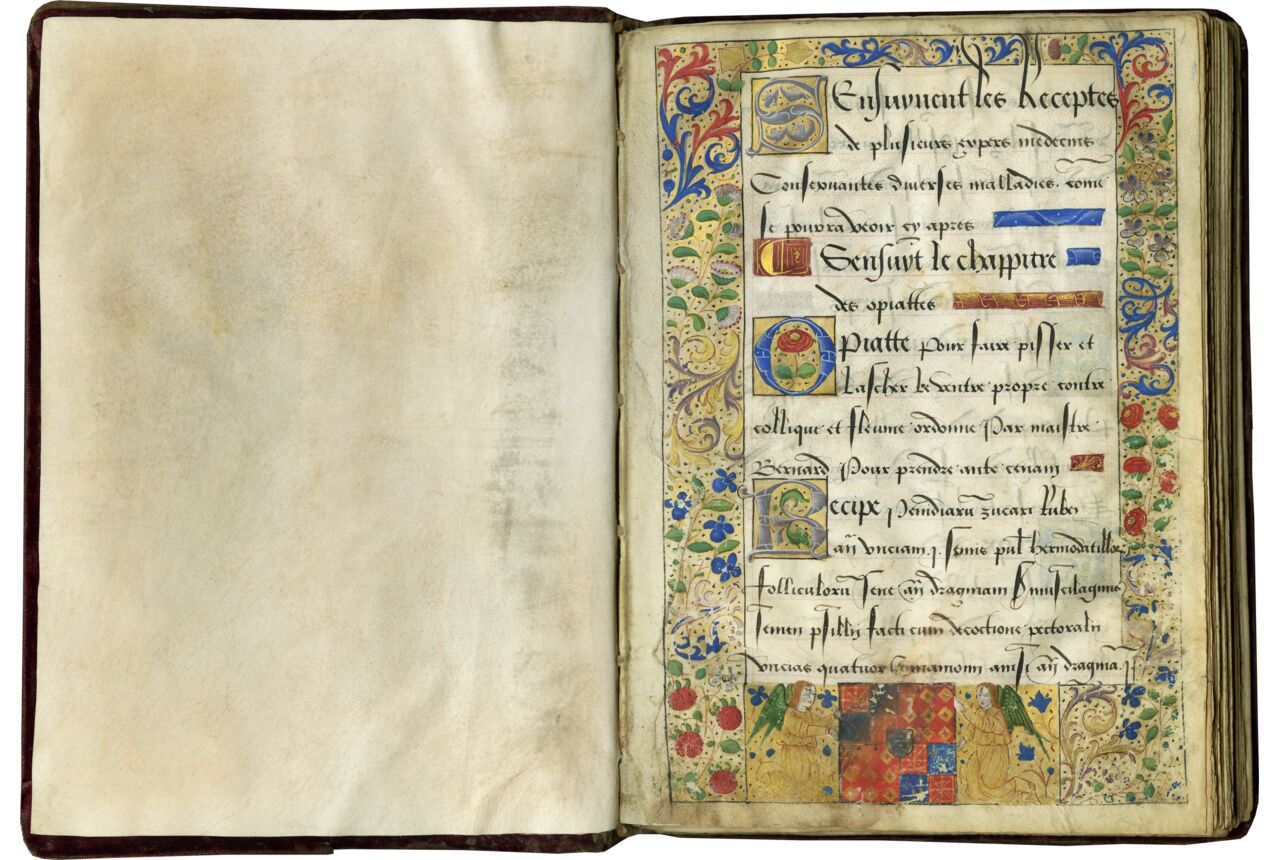 S Ensuyuent les Receptes
de plusieurs expers medecins
Conseruantes diuerses malladies. come
se pourra veoir cy apres
C Sensuyt le chappitre
des opiattes
Opiatte pour faire pisser et
Lascher le ventre propre contre
collique et fleume ordonne Par maistre
Bernard Pour prendre ante cenam
Recipe Penidiaru zucari Rubei
añ vnciam .j. semis pul hermodatillor
folliculoru sene añ dragmam muscilaginis
semen psillii facti cum decoctione pectoralii
vncias quatuor añ dragma .j.